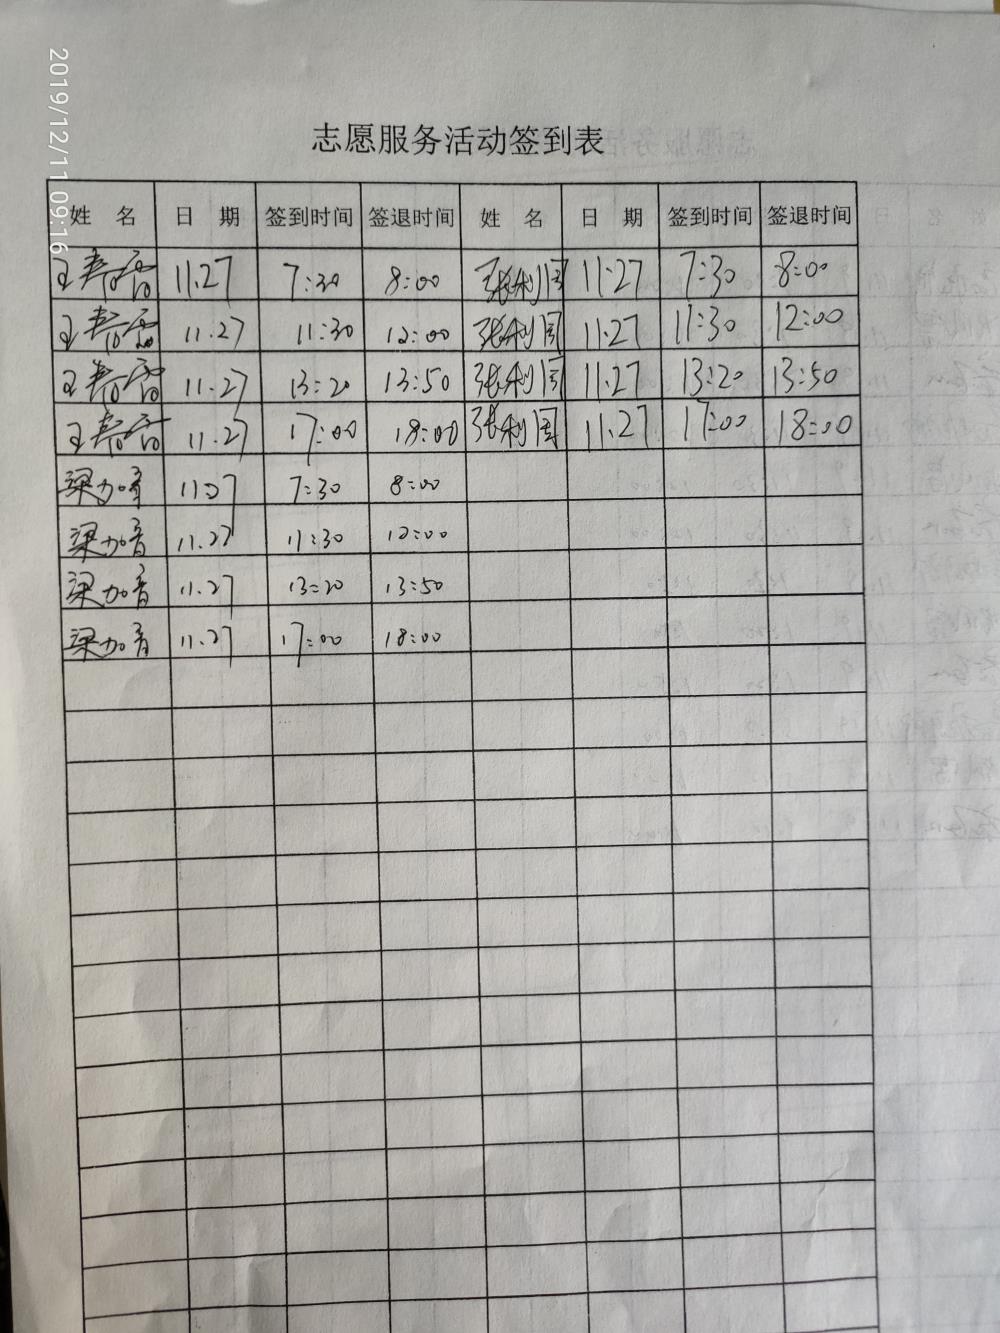 2019/12/11 09:16
志愿服务活动签到表
姓 名 日 期 签到时间 签退时间 姓 名 日 期 签到时间 签退时间
王春雷 11.27 7:30 8:00 张利国 11.27 7:30 8:00
王春雷 11.27 11:30 12:00 张利国 11.27 11:30 12:00
王春雷 11.27 13:20 13:50 张利国 11.27 13:20 13:50
王春雷 11.27 17:00 18:00 张利国 11.27 17:00 18:00
梁加音 11.27 7:30 8:00
梁加音 11.27 11:30 12:00
梁加音 11.27 13:20 13:50
梁加音 11.27 17:00 18:00